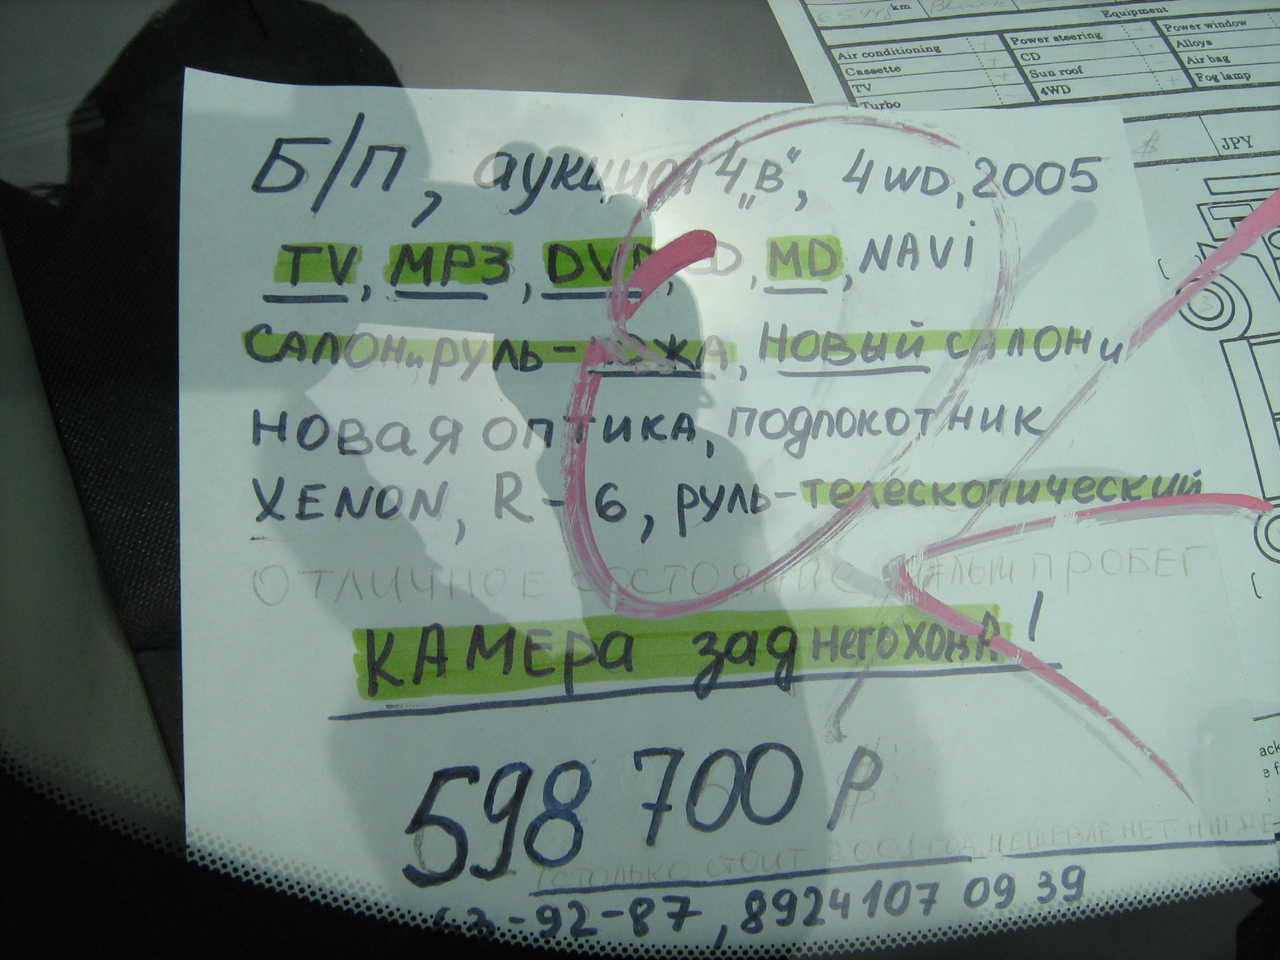 km
Equipment
Air conditioning Power steering Power window
Cassette CD Alloys
TV Sun roof Air bag
Turbo 4WD Fog lamp
JPY
Б/П, аукцион 4 „В“, 4WD, 2005
TV, MP3, DVD, CD, MD, NAVi
САЛОН и РУЛЬ - КОЖА, НОВЫЙ САЛОН и
НОВАЯ ОПТИКА, ПОДЛОКОТНИК
XENON, R-6, РУЛЬ-ТЕЛЕСКОПИЧЕСКИЙ
ОТЛИЧНОЕ СОСТОЯНИЕ МАЛЫЙ ПРОБЕГ
КАМЕРА ЗАДНЕГО ХОДА!
598 700 Р
СТОЛЬКО СТОИТ 2001 ГОДА ДЕШЕВЛЕ НЕТ НИГДЕ
-92-87, 8924107 09 39